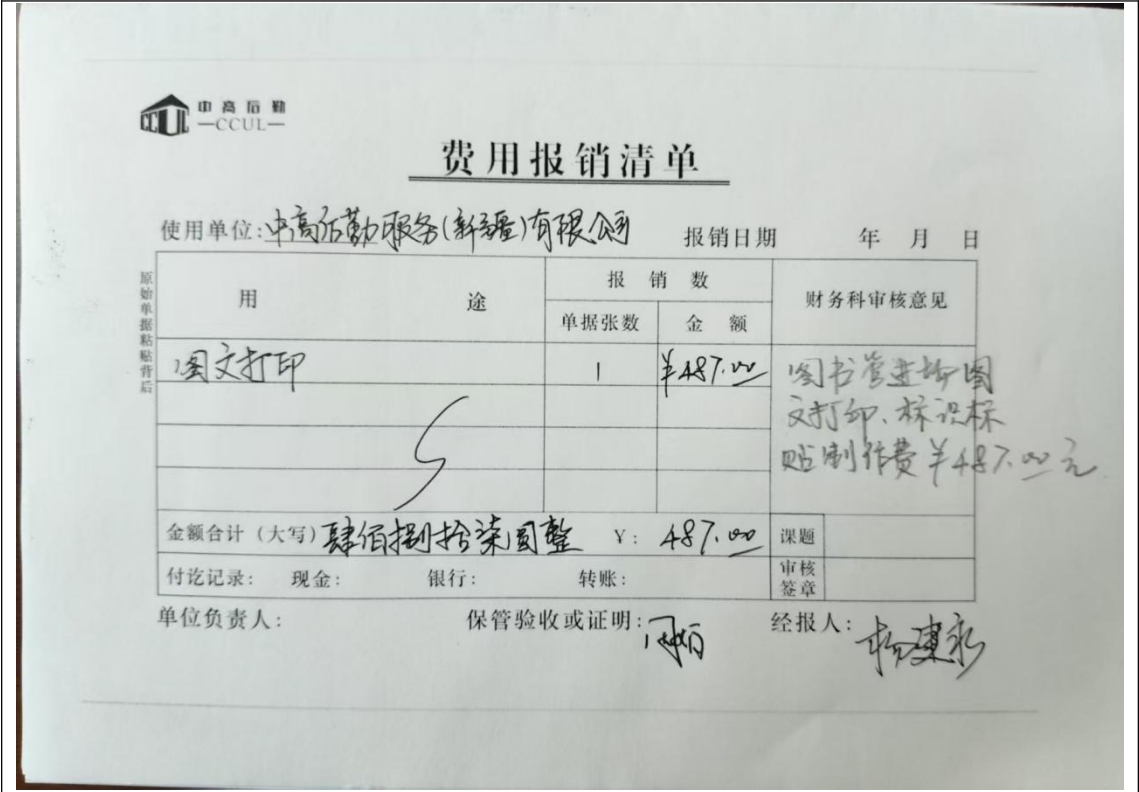 中高后勤
CCUL —CCUL—
费用报销清单
使用单位:中高后勤服务(新疆)有限公司 报销日期 年 月 日
原始单据粘贴背后
用 途 报销数 财务科审核意见
单据张数 金额
图文打印 1 ¥487.00 图书管进场图
文打印、标识标
贴制作费¥487.00元
金额合计(大写)肆佰捌拾柒圆整 ¥: 487.00 课题
付讫记录: 现金: 银行: 转账: 审核签章
单位负责人: 保管验收或证明: 经报人: